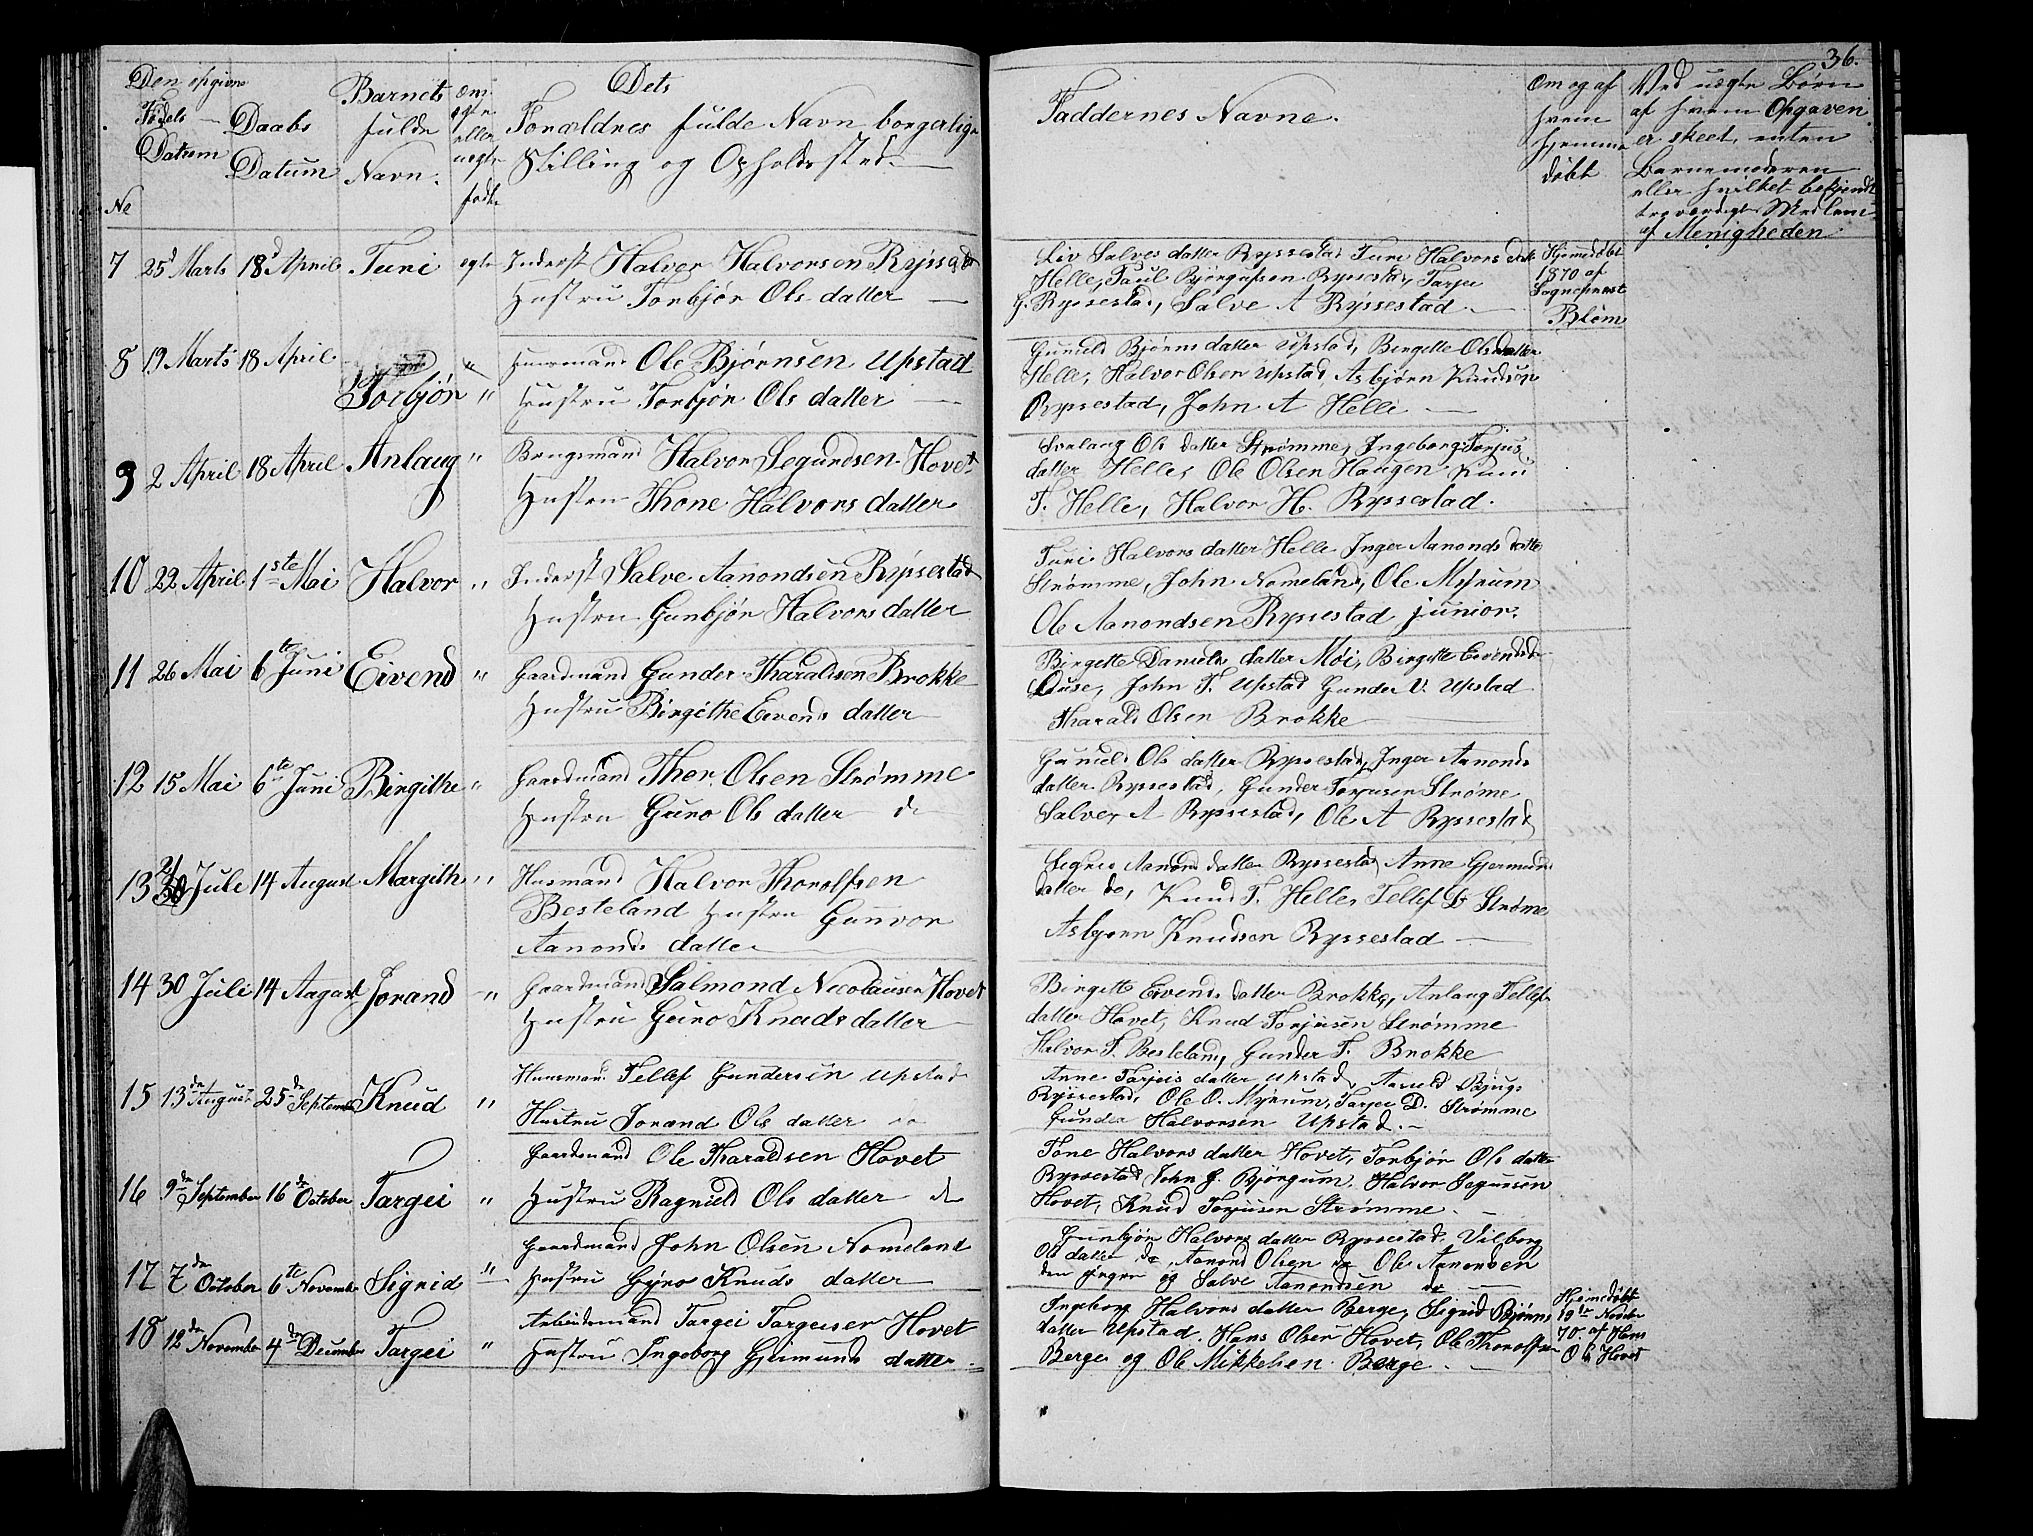 36.
Den opgivne Fødsels Datum
Daabs Datum
Barnets fulde Navn.
Om egte eller uegte fødte
Dets Forældres fulde Navn borgerlige Stilling og Opholdssted.
Faddernes Navne.
Om og af hvem hjemme døbt
Ved uegte Børn af hvem Opgaven er skeet, enten Barnemoderen eller hvilket bekjendt troværdigt Medlem af Menigheden
No
7 25d Marts 18d April Turi egte Inderst Halvor Halvorsen Ryssestad
Hustru Torbjør Ols datter
Liv Salves datter Ryssestad Turi Halvors datt
Helle, Paul Bjørgufsen Ryssestad, Tarjei
G. Ryssestad, Salve A Ryssestad.
Hjemmedøbt
1870 af
Sognepræst
Blom
8 19 Marts 18 April Torbjør " Huusmand Ole Bjørnsen Upstad
Hustru Torbjør Ols datter
Gunuld Bjørns datter Upstad, Birgitte Olsdatter
Helle, Halvor Olsen Upstad, Asbjørn Knudsen
Ryssestad, John A Helle
9 2 April 18 April Anlaug " Brugsmand Halvor Segurdsen Hovet
Hustru Thone Halvors datter
Svalaug Ols datter Strømme, Ingeborg Torjus
datter Helle, Ole Olsen Haugen Knud
T. Helle, Halvor H. Ryssestad.
10 22 April 1ste Mai Halvor " Inderst Salve Aanondsen Ryssestad
Hustru Gunbjør Halvors datter
Turi Halvors datter Helle Inger Aanonds datte
Strømme, John Nomeland, Ole Myrum
Ole Aanondsen Ryssestad junior.
11 26 Mai 6te Juni Eivend " Gaardmand Gunder Tharaldsen Brokke
Hustru Birgithe Eivends datter
Birgette Daniels datter Moi, Birgitte Eivends d
Ouse, John T. Upstad Gunder V. Upstad
Tharald Olsen Brokke
12 15 Mai 6te Juni Birgithe " Gaardmand Thor Olsen Strømme
Hustru Guro Ols datter do
Guneld Ols datter Ryssestad, Inger Aanonds
datter Ryssestad, Gunder Torjusen Strøme
Salve, A Ryssestad, Ole A Ryssestad
13 30 Juli 14 August Margith " Husmand Halvor Thorolfsen
Besteland Hustru Gunvor
Aanonds datter
Sigrid Aanons datter Ryssestad, Anne Gjermunds
datter do, Knud T. Helle, Tellef D Strøme
Asbjørn Knudsen Ryssestad
14 30 Juli 14 August Jorand " Gaardmand Salmond Nicolausen Hovet
Hustru Guro Knuds datter
Birgitte Eivends datter Brokke, Anlaug Tellefs
datter Hovet, Knud Torjusen Strømme
Halvor T. Besteland, Gunder T. Brokke
15 13de August 25de September Knud " Huusmand Tellef Gundersen Upstad
Hustru Jorand Ols datter do
Anne Tarjeis datter Upstad, Aanuld Bjugs
Ryssestad, Ole O. Myrum, Tarjei D. Strømme
Gunder Halvorsen Upstad.
16 9de September 16de October Targei " Gaardmand Ole Tharaldsen Hovet
Hustru Ragnild Ols datter do
Tone Halvors datter Hovet, Torbjør Ols datter
Ryssestad, John G. Bjørgum. Halvor Segursen
Hovet, Knud Torjusen Strømme.
17 7de October 6te November Sigrid " Gaardmand John Olsen Nomeland
Hustru Gyro Knuds datter
Gunbjør Halvors datter Ryssestad. Vilborg
Ols datter do, Aanond Olsen do Ole Aanondsen
den yngre og Salve Aanondsen do
18 12de November 4de December Targei " Arbeidsmand Targei Targeisen Hovet
Hustru Ingeborg Gjeimunds datter
Ingeborg Halvors datter Berge, Sigrid Bjørns
datter Upstad. Hans Olsen Hovet, Ole Thorolfsen
Berge og Ole Mikkelsen Berge.
Hjemedøbt
19de Novbr
70. af Hans
Ols Hovet